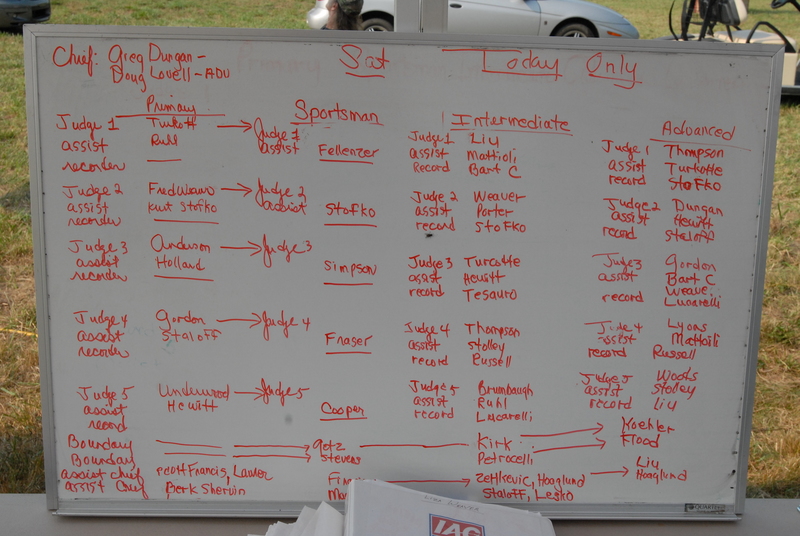 Chief: Greg Dungan - Sat Today Only
Doug Lovell - ADV
Primary Sportsman Intermediate Advanced
Judge 1 Turkott Judge 1 Judge 1 Liu Judge 1 Thompson
assist Ruhl assist Fellenzer assist Mattioli assist Turkotte
recorder Record Bart C record Stofko
Judge 2 Fred Weaver Judge 2 Judge 2 Weaver Judge 2 Dungan
assist Kurt Stofko assist Stofko assist Porter assist Hewitt
recorder record Stofko record Staloff
Judge 3 Anderson Judge 3 Judge 3 Turcotte Judge 3 Gordon
assist Holland Simpson assist Hewitt assist Bart C
recorder record Tesauro Weave
record Lucarelli
Judge 4 Gordon Judge 4 Judge 4 Thompson Judge 4 Lyons
assist Staloff Fraser assist Stolley assist Mattoili
recorder record Russell record Russell
Judge 5 Underwood Judge 5 Judge 5 Brumbaugh Judge 5 Woods
assist Hewitt Cooper assist Ruhl assist Stolley
record record Lucarelli record Liu
Boundary Gotz Kirk Koehler
Boundary Stevens Petrocelli Flood
assist chief Scott Francis, Lawer Zetlkevic, Hoaglund Liu
assist Chief Berk Sherwin Staloff, Lesko Hoaglund
QUARTET
IAC